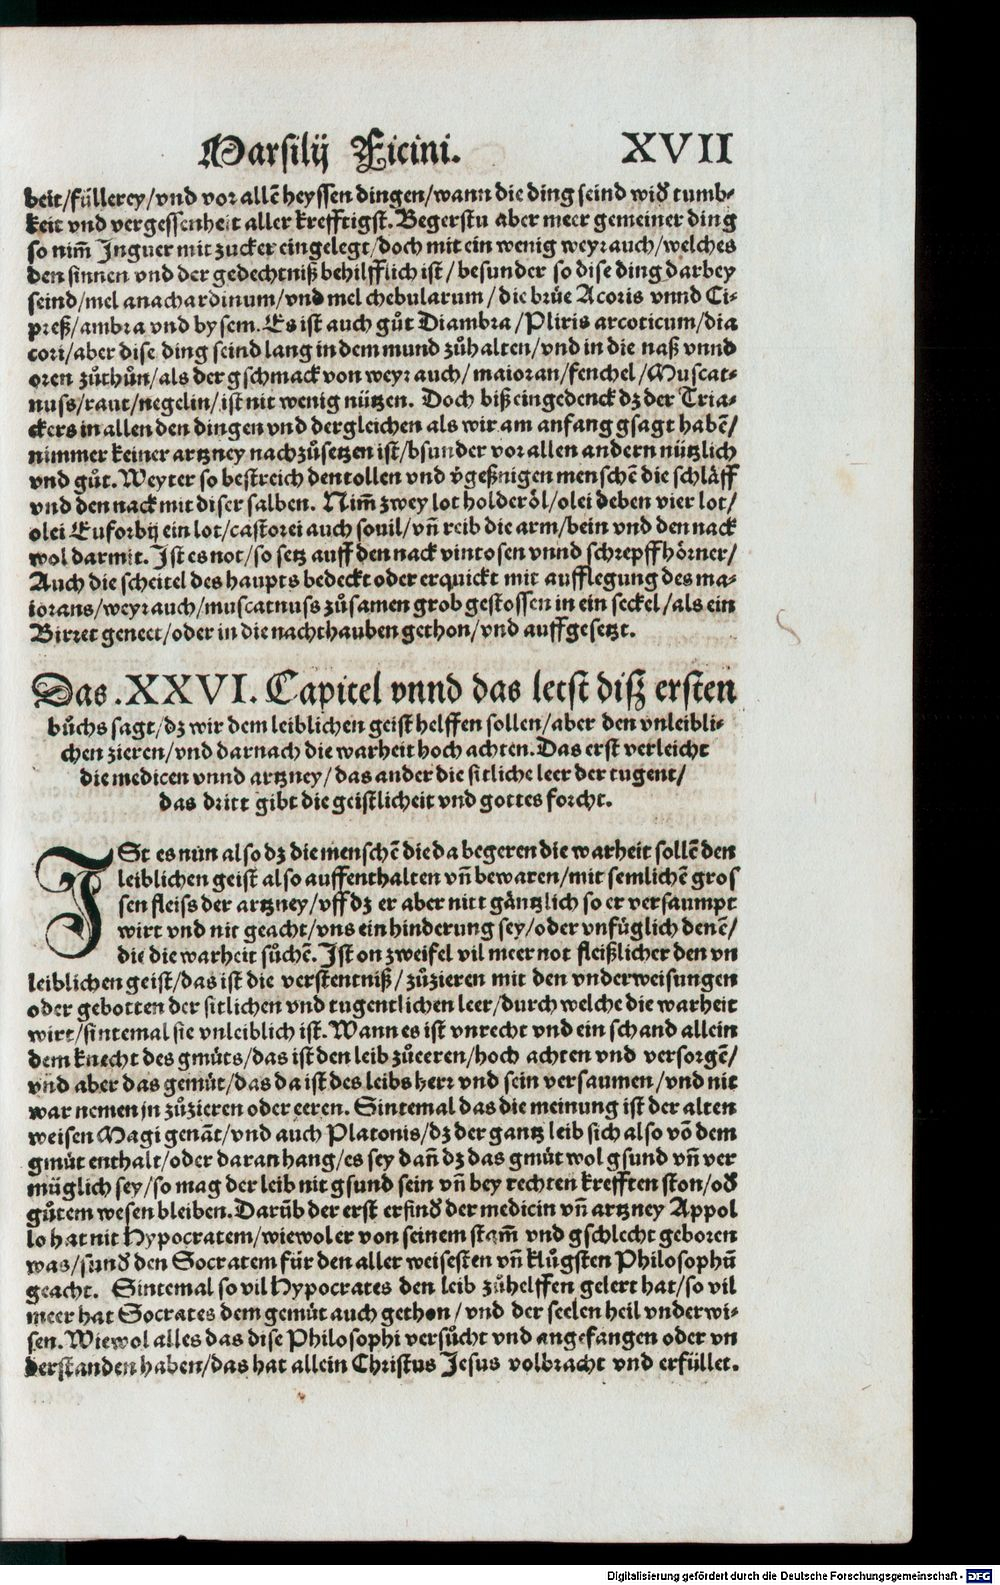 Marsilij Ficini. XVII
beit/füllerey/vnd vor allē heyssen dingen/wann die ding seind wid̄ tumb-
keit vnd vergessenheit aller krefftigst. Begerstu aber meer gemeiner ding
so nim̄ Ingwer mit zucker eingelegt/doch mit ein wenig weyrauch/welches
den sinnen vnd der gedechtniß behilfflich ist/besunder so dise ding darbey
seind/mel anachardinum/vnd mel chebularum/die brüe Acoris vnnd Ci-
preß/ambra vnd bysem. Es ist auch gůt Diambra/Pliris arcoticum/dia
cori/aber dise ding seind lang in dem mund zůhalten/vnd in die naß vnnd
oren zůthůn/als der gschmack von weyrauch/maioran/fenchel/Muscat-
nuss/raut/negelin/ist nit wenig nützen. Doch biß eingedenck dz der Tria-
ckers in allen den dingen vnd dergleichen als wir am anfang gsagt habē/
nimmer keiner artzney nachzůsetzen ist/bsunder vor allen andern nützlich
vnd gůt. Weyter so bestreich den tollen vnd v̄geßnigen menschē die schläff
vnd den nack mit diser salben. Nim̄ zwey lot holderöl/olei deben vier lot/
olei Euforbij ein lot/castorei auch souil/vn̄ reib die arm/bein vnd den nack
wol darmit. Ist es not/so setz auff den nack vintosen vnnd schrepffhörner/
Auch die scheitel des haupts bedeckt oder erquickt mit aufflegung des ma-
iorans/weyrauch/muscatnuss zůsamen grob gestossen in ein seckel/als ein
Birret geneet/oder in die nachthauben gethon/vnd auffgesetzt.
Das .XXVI. Capitel vnnd das letst diß ersten
bůchs sagt/dz wir dem leiblichen geist helffen sollen/aber den vnleibli-
chen zieren/vnd darnach die warheit hoch achten. Das erst verleicht
die medicen vnnd artzney/das ander die sitliche leer der tugent/
das dritt gibt die geistlicheit vnd gottes forcht.
ISt es nun also dz die menschē die da begeren die warheit sollē den
leiblichen geist also auffenthalten vn̄ bewaren/mit semlichē gros
sen fleiss der artzney/vff dz er aber nitt gäntzlich so er versaumpt
wirt vnd nit geacht/vns ein hinderung sey/oder vnfüglich denē/
die die warheit sůchē. Ist on zweifel vil meer not fleißlicher den vn
leiblichen geist/das ist die verstentniß/zůzieren mit den vnderweisungen
oder gebotten der sitlichen vnd tugentlichen leer/durch welche die warheit
wirt/sintemal sie vnleiblich ist. Wann es ist vnrecht vnd ein schand allein
dem knecht des gmůts/das ist den leib zůceren/hoch achten vnd versorgē/
vnd aber das gemůt/das da ist des leibs herr vnd sein versaumen/vnd nit
war nemen jn zůzieren oder eeren. Sintemal das die meinung ist der alten
weisen Magi genāt/vnd auch Platonis/dz der gantz leib sich also vō dem
gmůt enthalt/oder daran hang/es sey dan̄ dz das gmůt wol gsund vn̄ ver
müglich sey/so mag der leib nit gsund sein vn̄ bey rechten krefften ston/od̄
gůtem wesen bleiben. Darūb der erst erfind̄ der medicin vn̄ artzney Appol
lo hat nit Hypocratem/wiewol er von seinem stam̄ vnd gschlecht geboren
was/sund̄ den Socratem für den aller weisesten vn̄ klůgsten Philosophū
geacht. Sintemal so vil Hypocrates den leib zůhelffen gelert hat/so vil
meer hat Socrates dem gemůt auch gethon/vnd der seelen heil vnderwi-
sen. Wiewol alles das dise Philosophi versůcht vnd angefangen oder vn
derstanden haben/das hat allein Christus Jesus volbracht vnd erfüllet.
Digitalisierung gefördert durch die Deutsche Forschungsgemeinschaft - DFG